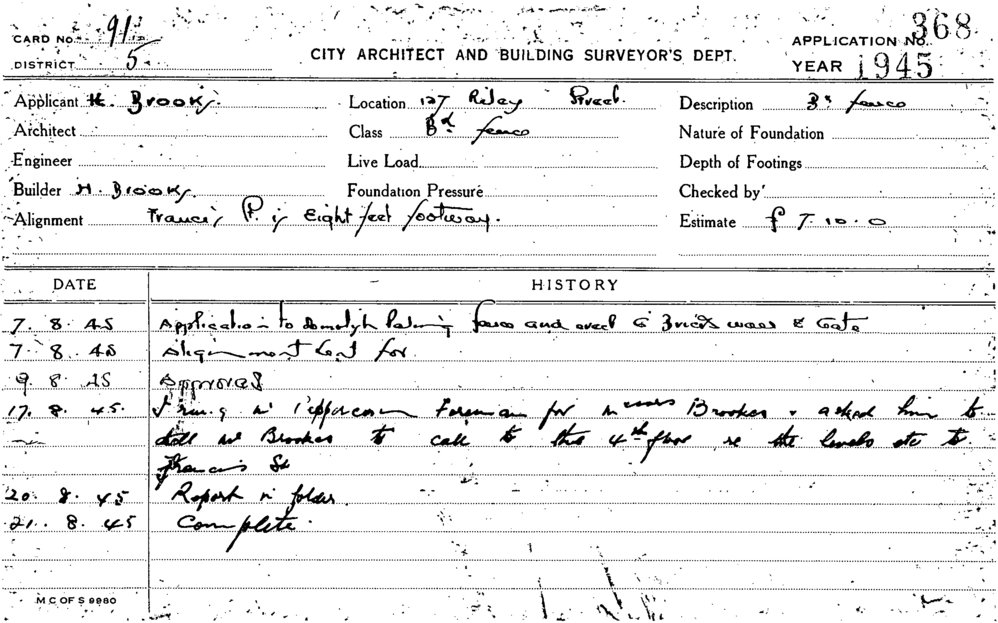 CARD No. 91
DISTRICT 5
CITY ARCHITECT AND BUILDING SURVEYOR'S DEPT.
APPLICATION No. 368
YEAR 1945
Applicant H. Brooks.
Location 127 Riley Street.
Description Bk fence
Architect
Class Bk fence
Nature of Foundation
Engineer
Live Load
Depth of Footings
Builder H. Brooks.
Foundation Pressure
Checked by
Alignment Francis St. is Eight feet footway.
Estimate £ 7. 10. 0
DATE HISTORY
7. 8. 45 Application to demolish Paling fence and erect a Brick wall & Gate
7. 8. 45 Alignment Sent for
9. 8. 45 Approved
17. 8. 45. I rung Mr Peppercorn Foreman for Messrs Brookes & asked him to
tell Mr Brookes to call to the 4th floor re the levels etc to
Francis St
20. 8. 45 Report in folder
21. 8. 45 Complete.
M C OF S 9980